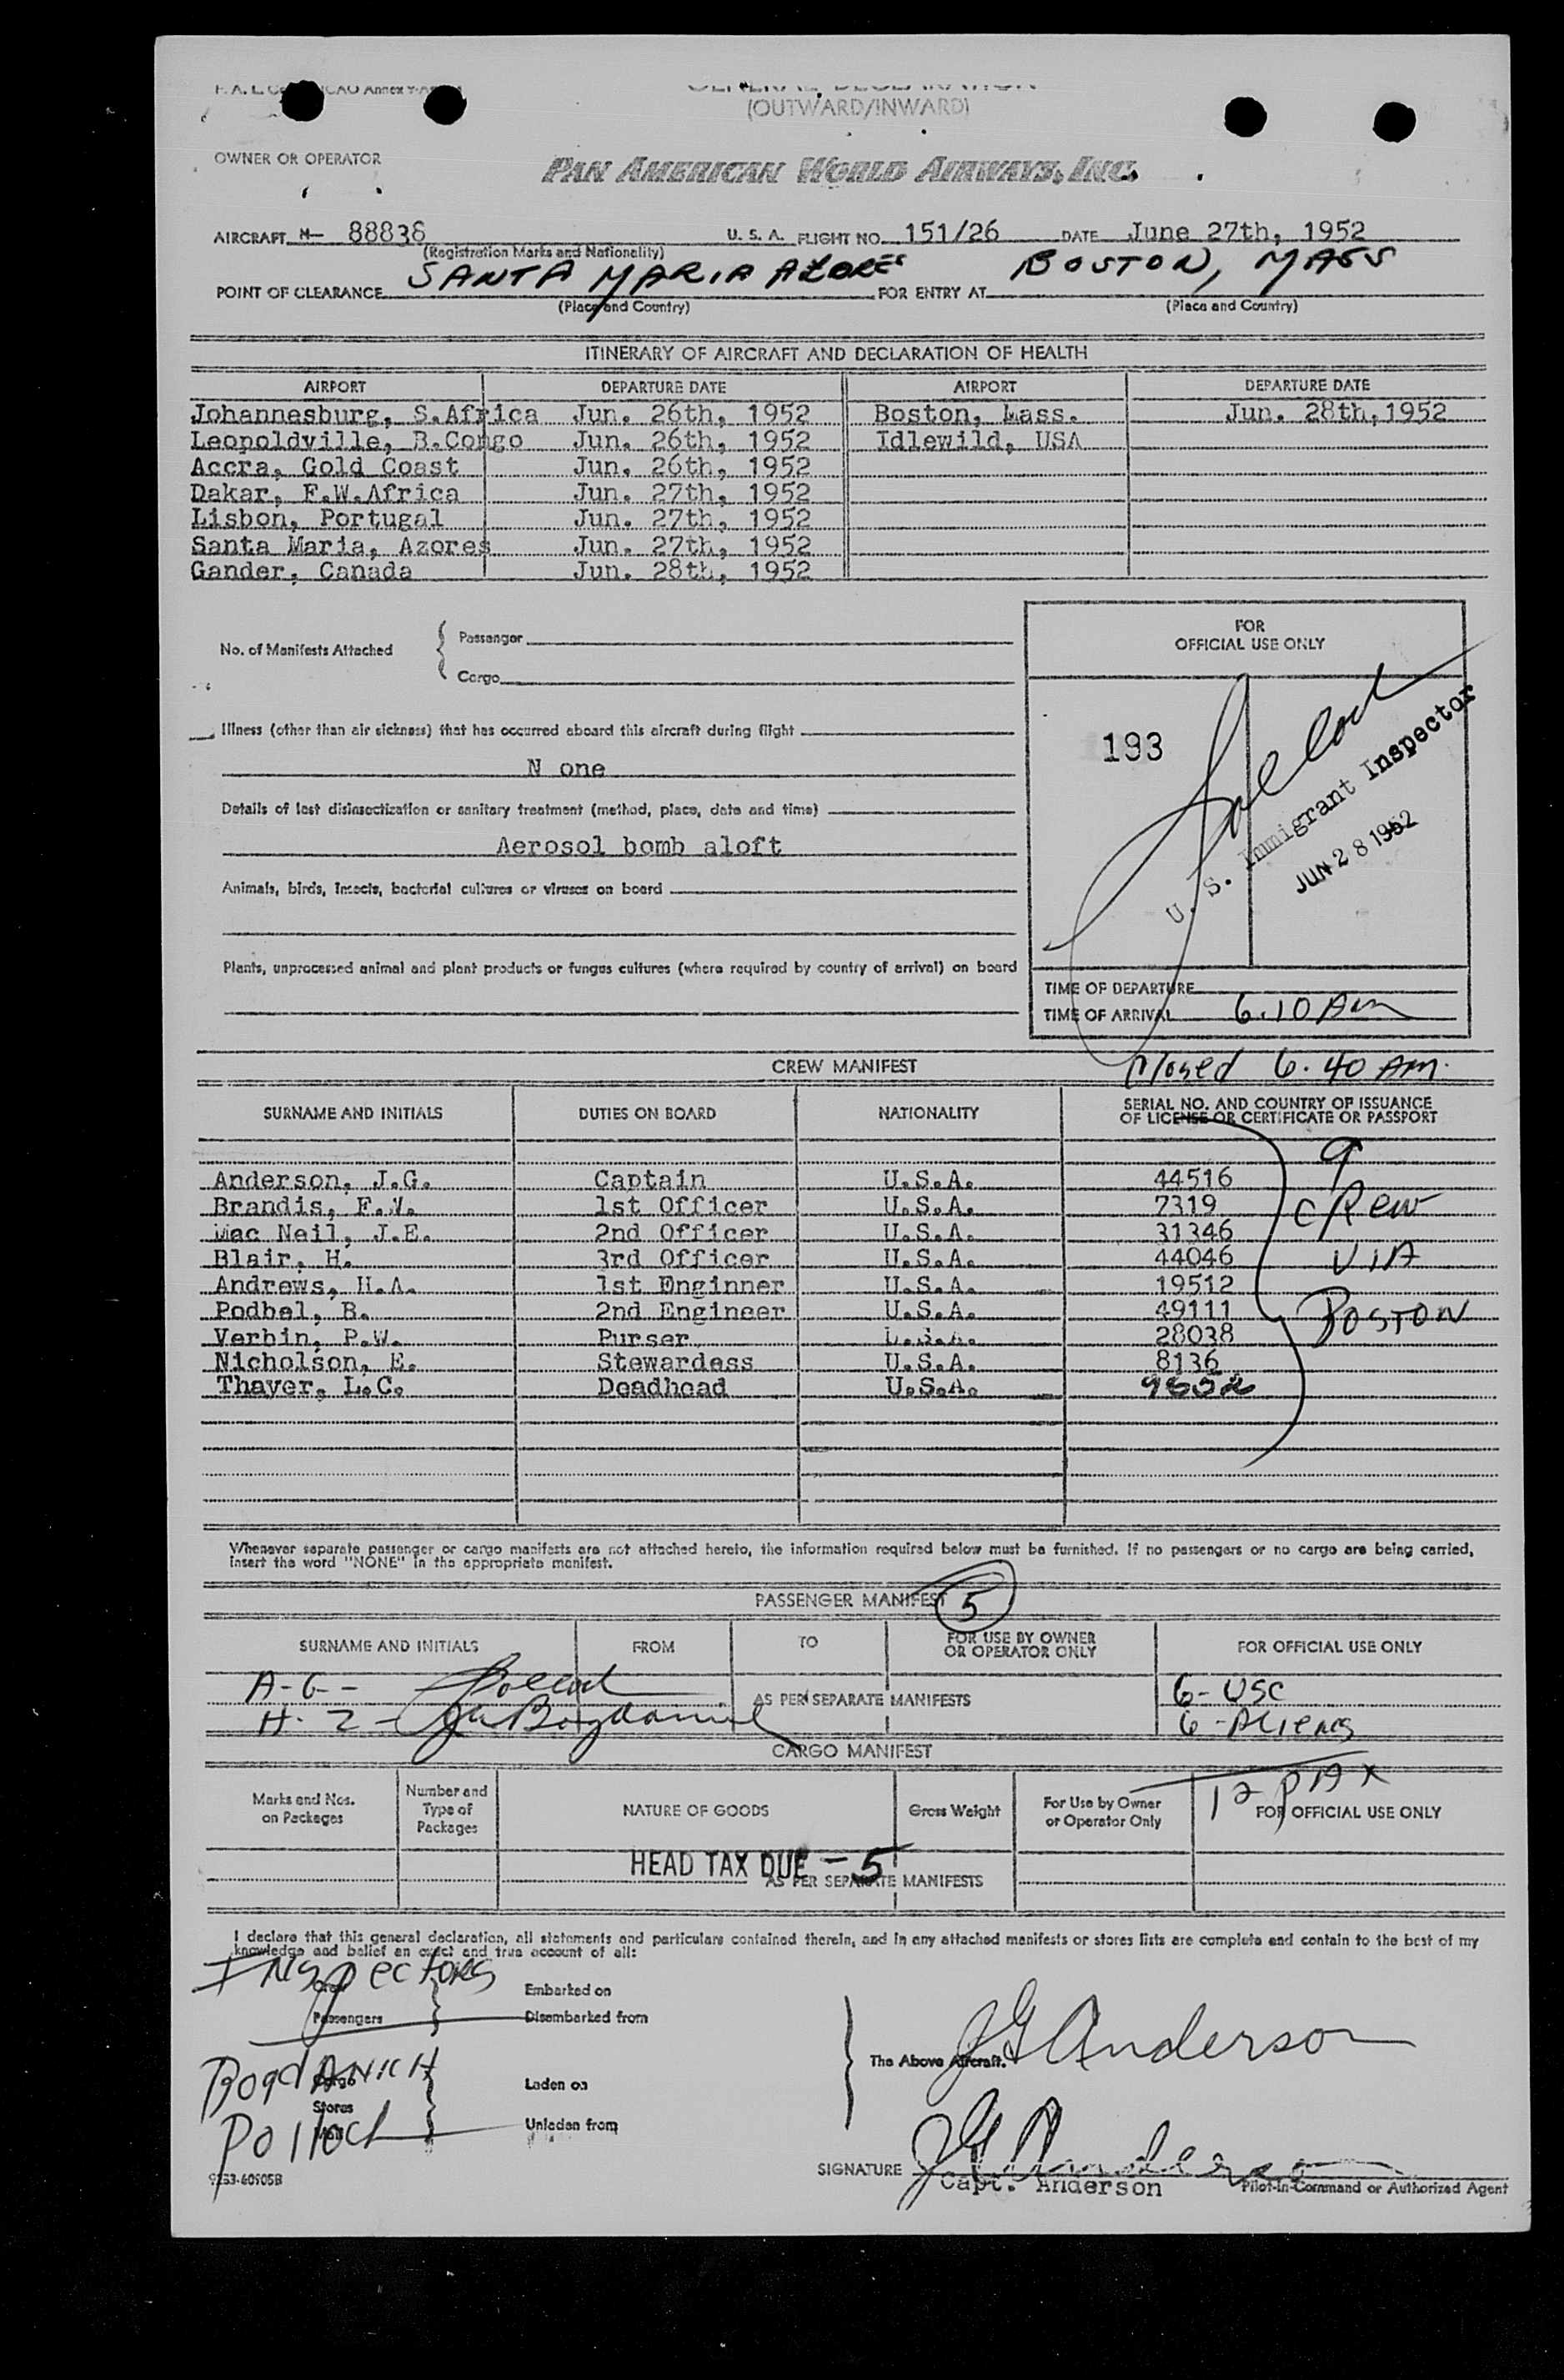 GENERAL DECLARATION
(OUTWARD/INWARD)
OWNER OR OPERATOR
PAN AMERICAN WORLD AIRWAYS, INC.
AIRCRAFT N- 88838 U. S. A. FLIGHT NO. 151/26 DATE June 27th, 1952
(Registration Marks and Nationality)
POINT OF CLEARANCE SANTA MARIA AZORES FOR ENTRY AT BOSTON, MASS
(Place and Country) (Place and Country)
ITINERARY OF AIRCRAFT AND DECLARATION OF HEALTH
AIRPORT DEPARTURE DATE AIRPORT DEPARTURE DATE
Johannesburg, S.Africa Jun. 26th, 1952 Boston, Mass. Jun. 28th, 1952
Leopoldville, B.Congo Jun. 26th, 1952 Idlewild, USA
Accra, Gold Coast Jun. 26th, 1952
Dakar, F.W.Africa Jun. 27th, 1952
Lisbon, Portugal Jun. 27th, 1952
Santa Maria, Azores Jun. 27th, 1952
Gander, Canada Jun. 28th, 1952
No. of Manifests Attached { Passenger
Cargo
FOR
OFFICIAL USE ONLY
Illness (other than air sickness) that has occurred aboard this aircraft during flight
N one
193
Pollock
U. S. Immigrant Inspector
JUN 28 1952
Details of last disinsectization or sanitary treatment (method, place, date and time)
Aerosol bomb aloft
Animals, birds, insects, bacterial cultures or viruses on board
Plants, unprocessed animal and plant products or fungus cultures (where required by country of arrival) on board
TIME OF DEPARTURE
TIME OF ARRIVAL 6.10 Am
Closed 6.40 AM.
CREW MANIFEST
SURNAME AND INITIALS DUTIES ON BOARD NATIONALITY SERIAL NO. AND COUNTRY OF ISSUANCE
OF LICENSE OR CERTIFICATE OR PASSPORT
Anderson, J.G. Captain U.S.A. 44516 9
Brandis, F.W. 1st Officer U.S.A. 7319 CREW
Mac Neil, J.E. 2nd Officer U.S.A. 31346
Blair, H. 3rd Officer U.S.A. 44046 VIA
Andrews, H.A. 1st Enginner U.S.A. 19512
Podbel, B. 2nd Engineer U.S.A. 49111 BOSTON
Verbin, P.W. Purser U.S.A. 28038
Nicholson, E. Stewardess U.S.A. 8136
Thayer, L.C. Deadhead U.S.A.
Whenever separate passenger or cargo manifests are not attached hereto, the information required below must be furnished. If no passengers or no cargo are being carried,
insert the word "NONE" in the appropriate manifest.
PASSENGER MANIFEST 5
SURNAME AND INITIALS FROM TO FOR USE BY OWNER
OR OPERATOR ONLY FOR OFFICIAL USE ONLY
A-G- Pollock 6- USC
AS PER SEPARATE MANIFESTS
H-Z- Bogdanich 6-Aliens
CARGO MANIFEST
12 PAX
Marks and Nos.
on Packages
Number and
Type of
Packages
NATURE OF GOODS
Gross Weight
For Use by Owner
or Operator Only
FOR OFFICIAL USE ONLY
HEAD TAX DUE - 5
AS PER SEPARATE MANIFESTS
I declare that this general declaration, all statements and particulars contained therein, and in any attached manifests or stores lists are complete and contain to the best of my
knowledge and belief an exact and true account of all:
INSPECTORS
Crew
Passengers
Embarked on
Disembarked from
BogdANICH
Cargo
Stores
Mail
Laden on
Unladen from
Pollock
The Above Aircraft.
JG Anderson
SIGNATURE JG Anderson
Capt. Anderson Pilot-in-Command or Authorized Agent